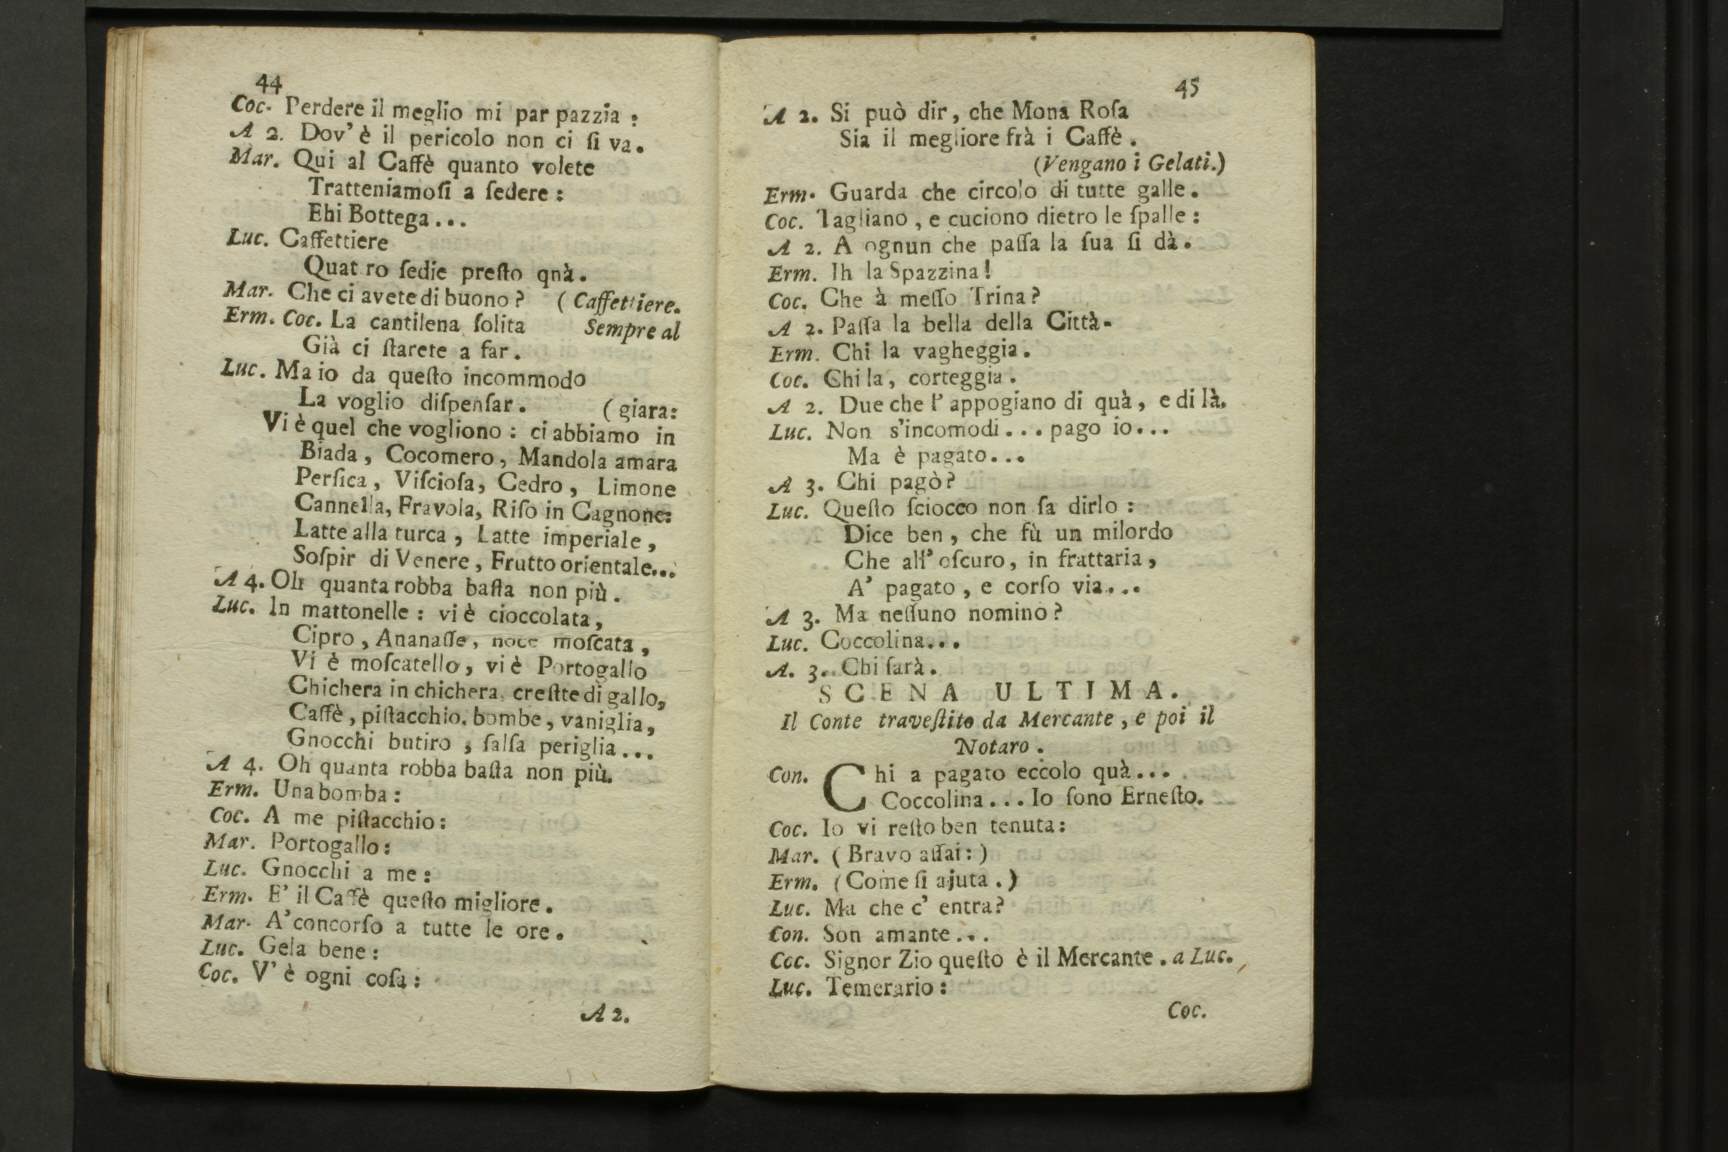 44
Coc. Perdere il meglio mi par pazzia :
A 2. Dov' è il pericolo non ci ſi va.
Mar. Qui al Caffè quanto volete
Tratteniamoſi a ſedere :
Ehi Bottega...
Luc. Caffettiere
Quat ro ſedie preſto qnà.
Mar. Che ci avete di buono ? ( Caffettiere.
Erm. Coc. La cantilena ſolita Sempre al
Già ci ſtarete a far.
Luc. Ma io da queſto incommodo
La voglio diſpenſar. ( giara:
Vi è quel che vogliono : ci abbiamo in
Biada, Cocomero, Mandola amara
Perſica, Viſcioſa, Cedro, Limone
Cannella, Fravola, Riſo in Cagnone:
Latte alla turca, Latte imperiale,
Soſpir di Venere, Frutto orientale...
A 4. Oh quanta robba baſta non più.
Luc. In mattonelle : vi è cioccolata,
Cipro, Ananaſſe, noce moſcata,
Vi è moſcatello, vi è Portogallo
Chichera in chichera, creſtte di gallo,
Caffè, piſtacchio, bombe, vaniglia,
Gnocchi butiro, ſalſa periglia...
A 4. Oh quanta robba baſta non più.
Erm. Una bomba :
Coc. A me piſtacchio :
Mar. Portogallo :
Luc. Gnocchi a me :
Erm. E' il Caffè queſto migliore.
Mar. A' concorſo a tutte le ore.
Luc. Gela bene :
Coc. V' è ogni coſa :
A 2.
45
A 2. Si può dir, che Mona Roſa
Sia il megliore frà i Caffè.
(Vengano i Gelati.)
Erm. Guarda che circolo di tutte galle.
Coc. Tagliano, e cuciono dietro le ſpalle :
A 2. A ognun che paſſa la ſua ſi dà.
Erm. Ih la Spazzina!
Coc. Che à meſſo Trina?
A 2. Paſſa la bella della Città.
Erm. Chi la vagheggia.
Coc. Chi la, corteggia.
A 2. Due che l' appogiano di quà, e di là.
Luc. Non s'incomodi... pago io...
Ma è pagato...
A 3. Chi pagò?
Luc. Queſto ſciocco non ſa dirlo :
Dice ben, che fù un milordo
Che all' oſcuro, in frattaria,
A' pagato, e corſo via...
A 3. Ma neſſuno nomino?
Luc. Coccolina...
A. 3. Chi ſarà.
SCENA ULTIMA.
Il Conte traveſtito da Mercante, e poi il
Notaro.
Con. Chi a pagato eccolo quà...
Coccolina... Io ſono Erneſto.
Coc. Io vi reſto ben tenuta :
Mar. ( Bravo aſſai : )
Erm. (Come ſi ajuta.)
Luc. Ma che c' entra?
Con. Son amante...
Coc. Signor Zio queſto è il Mercante. a Luc.
Luc. Temerario :
Coc.